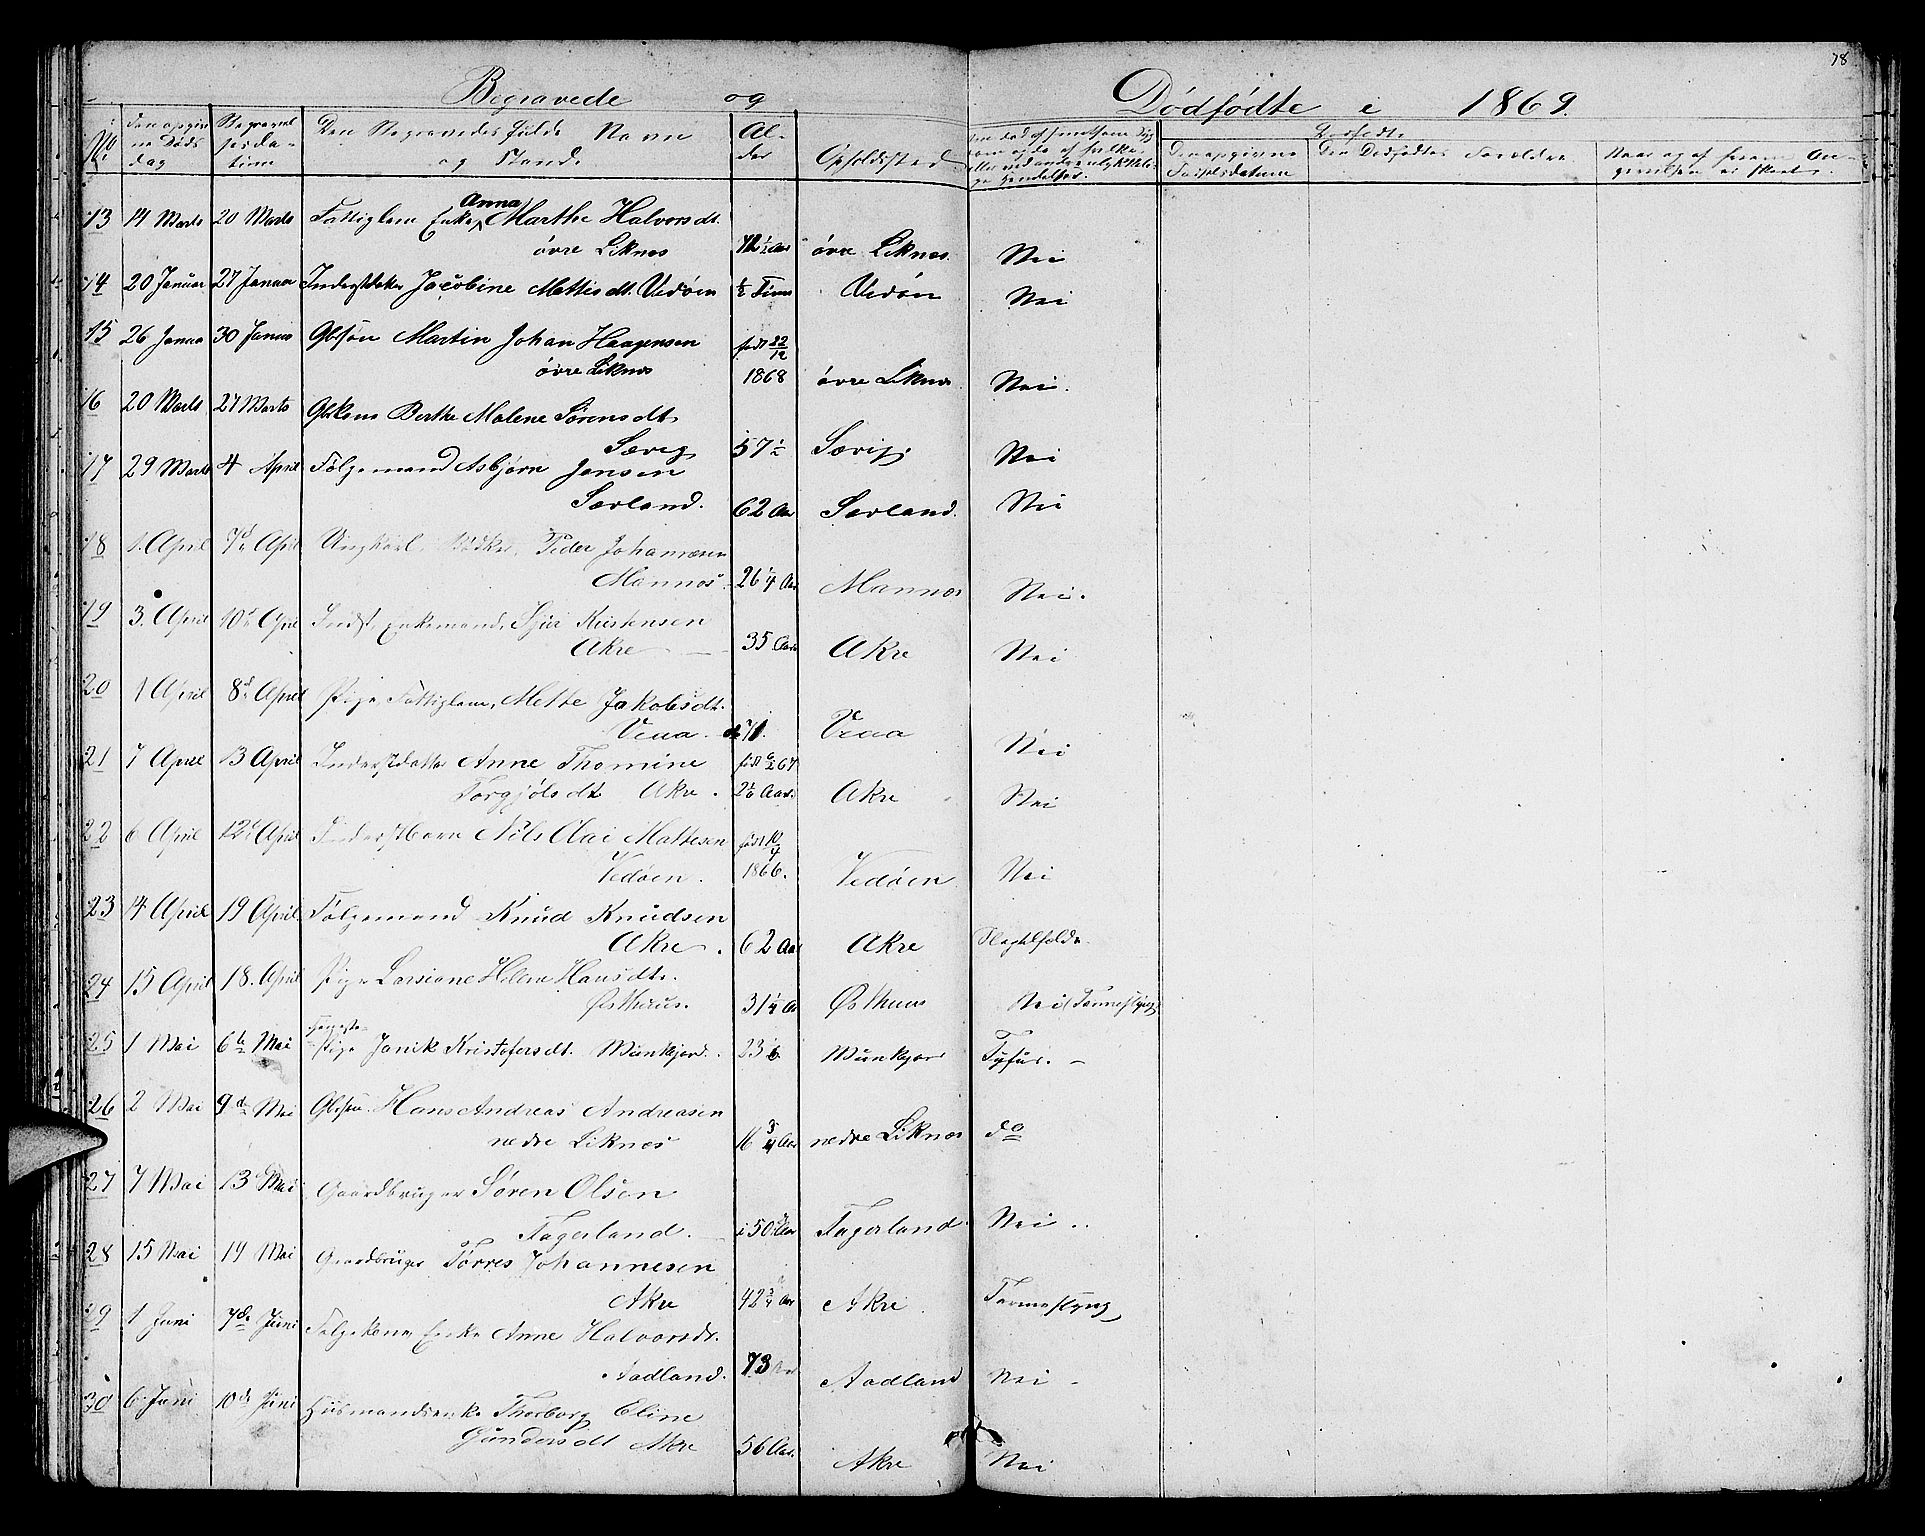 78
Begravede og Dødfødte i 1869.
No
Den opgivne Døds dag
Begravelsesdatum
Den Begravedes fulde Navn og Stand.
Alder
Opholdssted
Dødfødte
Den opgivne Fødselsdatum
Den Dødfødtes Forældre
13 14 Marts 20 Marts Fattiglem Enke Anna Marthe Halvorsdt.
øvre Liknes øvre Liknes. Nei
14 20 Januar 27 Januar Inderstdatter Jacobine Mattisdt. Vedøen ½ Time Vedøn Nei
15 26 Janua 30 Januar Gbrsøn Martin Johan Haagensen født 22/12
øvre Liknes 1868 øvre Liknes Nei.
16 20 Marts 27 Marts Gbkone Berthe Malene Sørensdt.
Sævig 57½ Sævig. Nei
17 29 Marts 4 April Følgemand Asbjørn Jensen
Sørland. 62 Aar Sørland. Nei
18 1. April 7de April Ungkarl, Bødker, Peder Johannesen
Mannes 26¼ Aar Mannes Nei.
19 3. April 10de April Indst. Enkemand, Sjur Kristensen
Akre 35 Aar Akre Nei
20 1 April 8de April Pige, Fattiglem, Mette Jakobsdt.
Veaa. 71. Veaa Nei
21 7 April 13 April Inderstdatter Anne Thomine født 6/2 67
Torgjølsdt. Akre. Akre Nei
22 6 April 12te April Inderstbarn Nils Olai Mathesen født 10/4
Vedøen. 1866. Vedøen Nei
23 14 April 19 April Følgemand Knud Knudsen
Akre. 62 Aar Akre
24 15 April 18. April Pige Larsiane Helene Hansdtr.
Østhuus. 31¼ A Østhuus Nei (Tæresyge)
25 1 Mai 6te Mai Pige Janik Kristofersdt. Munkjord. 23 Munkjor Tyfus. –
26 2 Mai 9de Mai Gbrsøn Hans Andreas Andreasen
nedre Liknes 16¾ Aar nedre Liknes do
27 7 Mai 13 Mai Gaardbruger Søren Olsen
Fagerland. i 50. Aar Fagerland. Nei..
28 15 Mai 19 Mai Gaardbruger Tørres Johannesen
Akre 42¾ Aar Akre
29 1 Juni 7de Juni Følgekone, Enke Anne Halvorsdt.
Aadland. 73 Aar Aadland Nei –
30 6. Juni 10de Juni Husmandsenke Thorborg Eline
Gundersdt Akre 56 Aar. Akre Nei